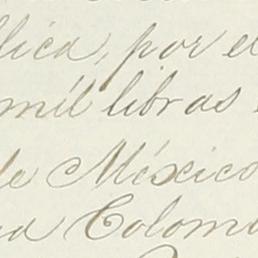 lica, por el
mil libras
de México
Colom